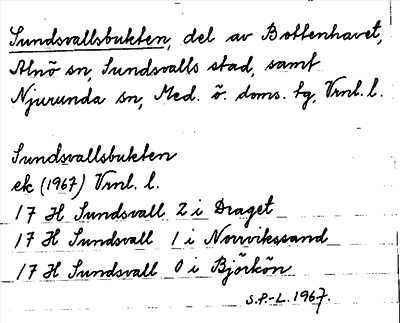 Sundsvallsbukten, del av Bottenhavet,
Alnö sn, Sundsvalls stad, samt
Njurunda sn, Med. ö. doms. tg, Vrnl. l.
Sundsvallsbukten
ek (1967) Vrnl. l.
17 H Sundsvall 2 i Draget
17 H Sundsvall 1 i Norrvikssand
17 H Sundsvall 0 i Björkön
S.P-L. 1967.